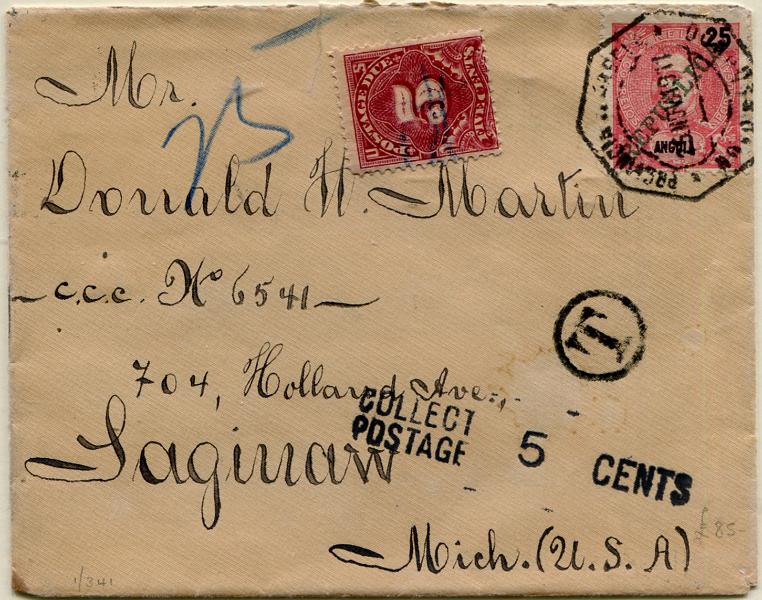 25
ANGOLA
POSTAGE DUE
5
FIVE CENTS
Mr.
Donald W. Martin
— c.c.c. No 6541 —
704, Holland Ave.,
Saginaw
Mich. (U.S.A)
T
COLLECT
POSTAGE
5 CENTS
£85-
1/341